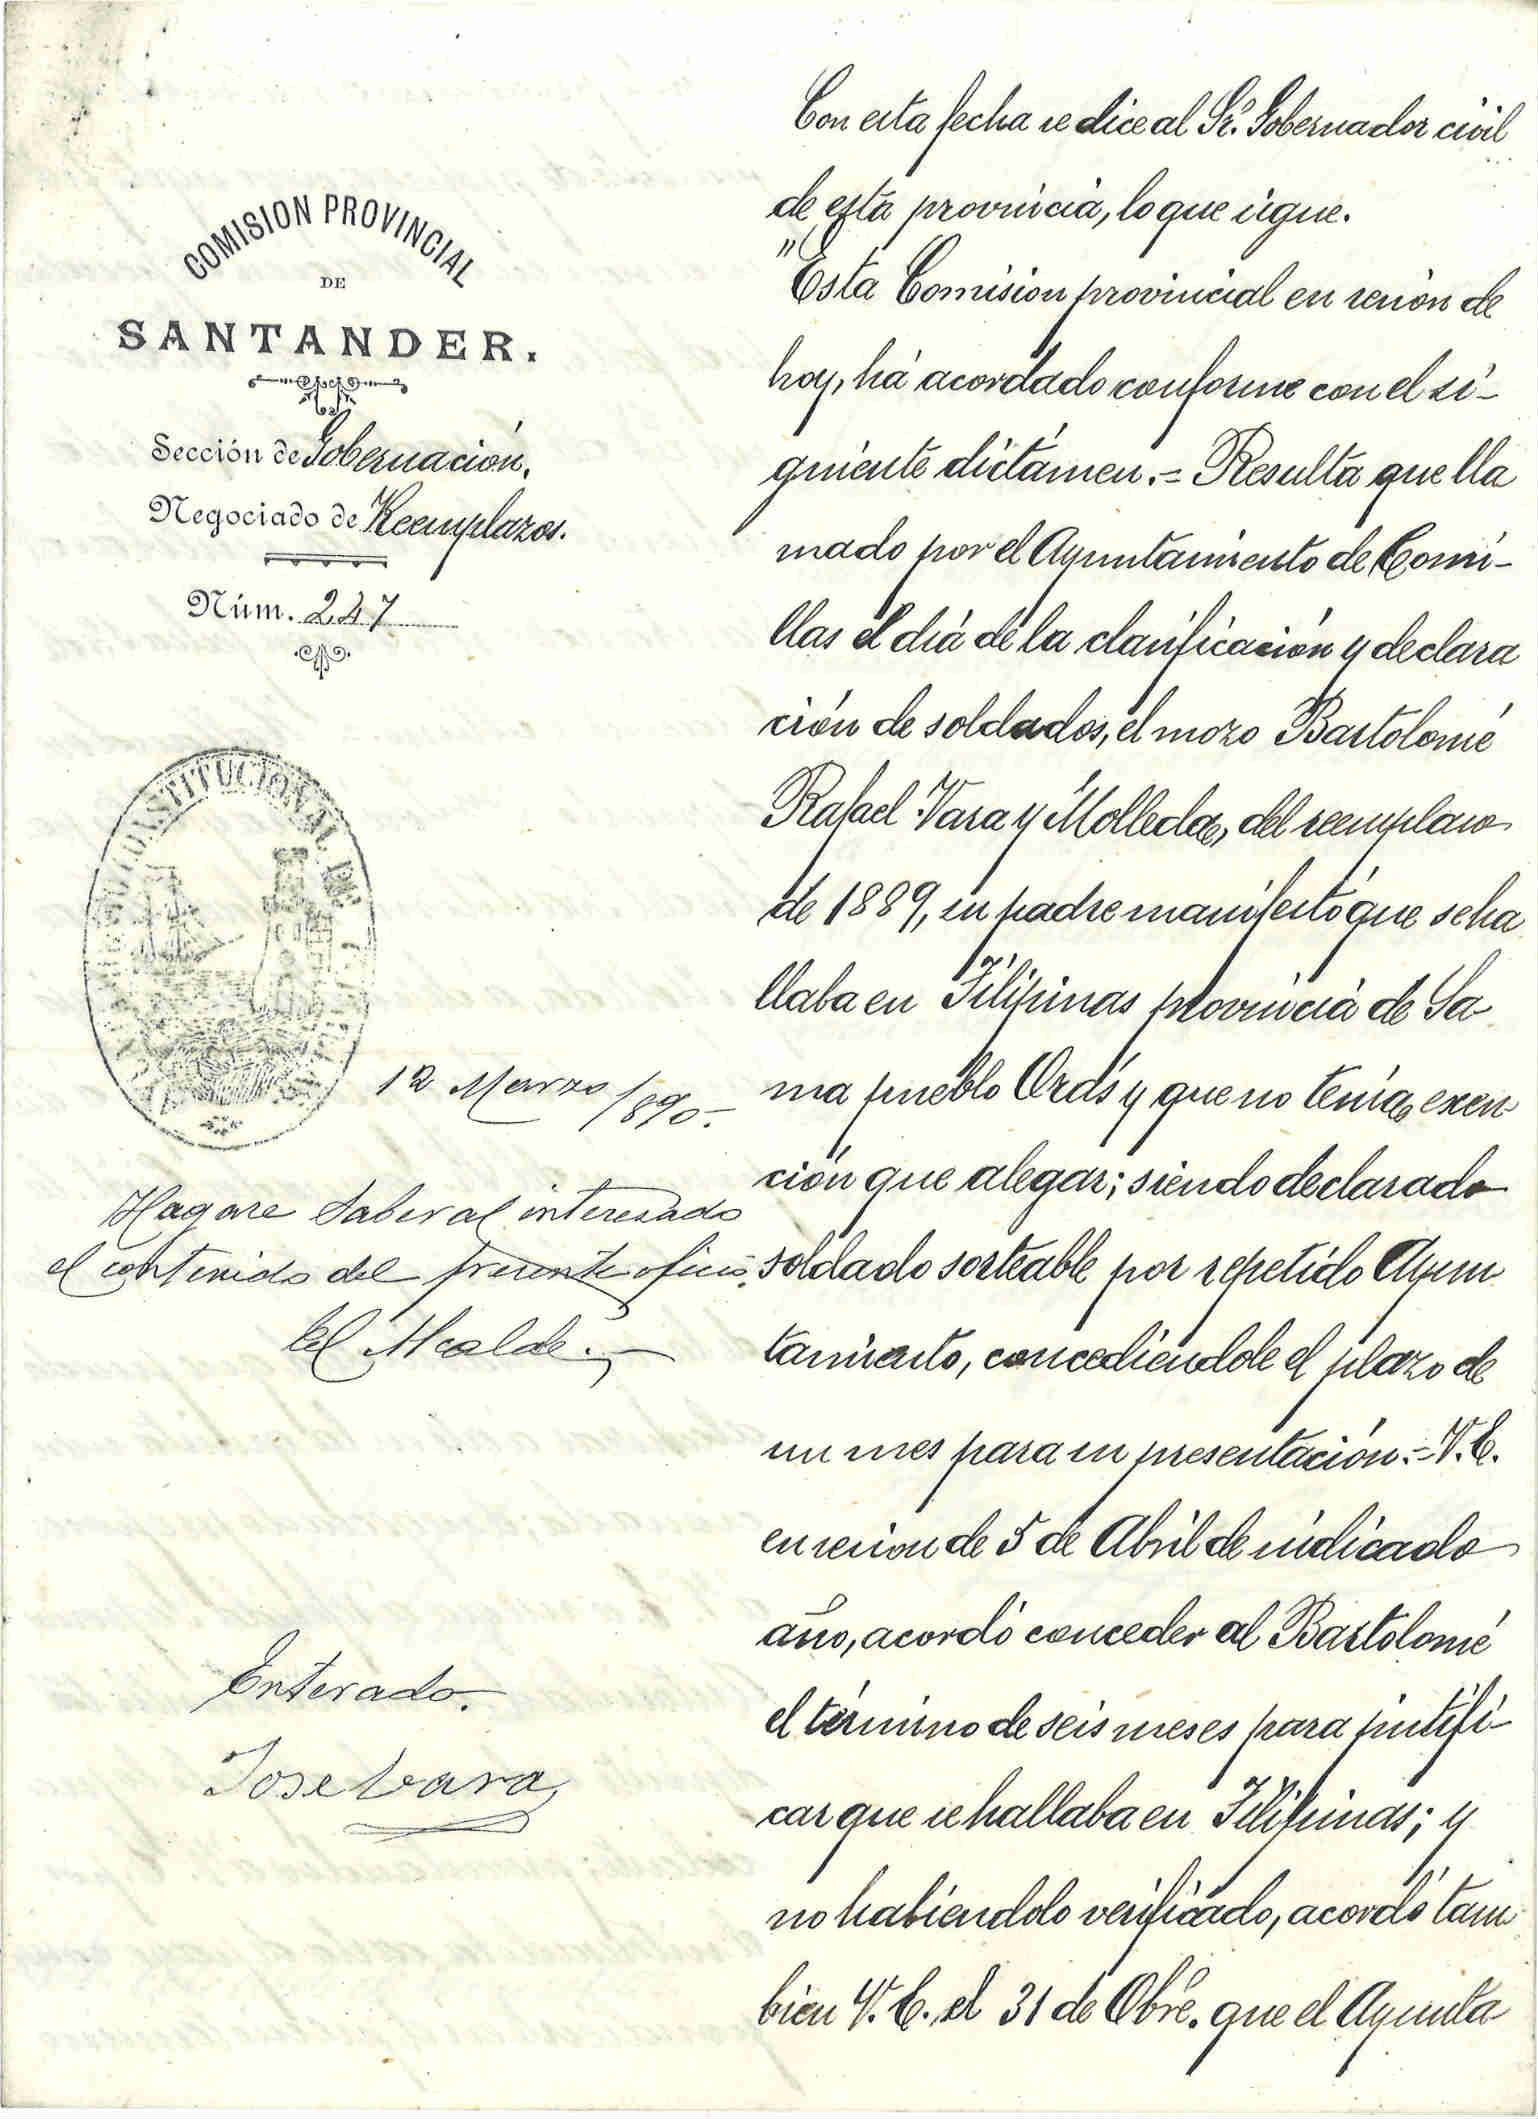 COMISION PROVINCIAL
DE
SANTANDER.
Sección de Gobernación.
Negociado de Reemplazos.
Núm. 247
CONSTITUCIONAL DE
12 Marzo 1890.-
Hagase saber al interesado
el contenido del presente oficio.
El Alcalde.
Enterado.
Jose Vara
Con esta fecha se dice al Sr. Gobernador civil
de esta provincia, lo que sigue.
"Esta Comision provincial en sesión de
hoy, há acordado conforme con el si-
guiente dictámen.= Resulta que lla
mado por el Ayuntamiento de Comi-
llas el dia de la clasificación y declara
ción de soldados, el mozo Bartolomé
Rafael Vara y Molleda, del reemplazo
de 1889, su padre manifestó que se ha
llaba en Filipinas provincia de Sa-
ma pueblo Orás y que no tenia exen
ción que alegar; siendo declarado
soldado sorteable por repetido Ayun
tamiento, concediendole el plazo de
un mes para su presentación.= V.E.
en sesion de 5 de Abril de indicado
año, acordó conceder al Bartolomé
el término de seis meses para justifi-
car que se hallaba en Filipinas; y
no habiendolo verificado, acordó tam
bien V.E. el 31 de Obre. que el Ayunta